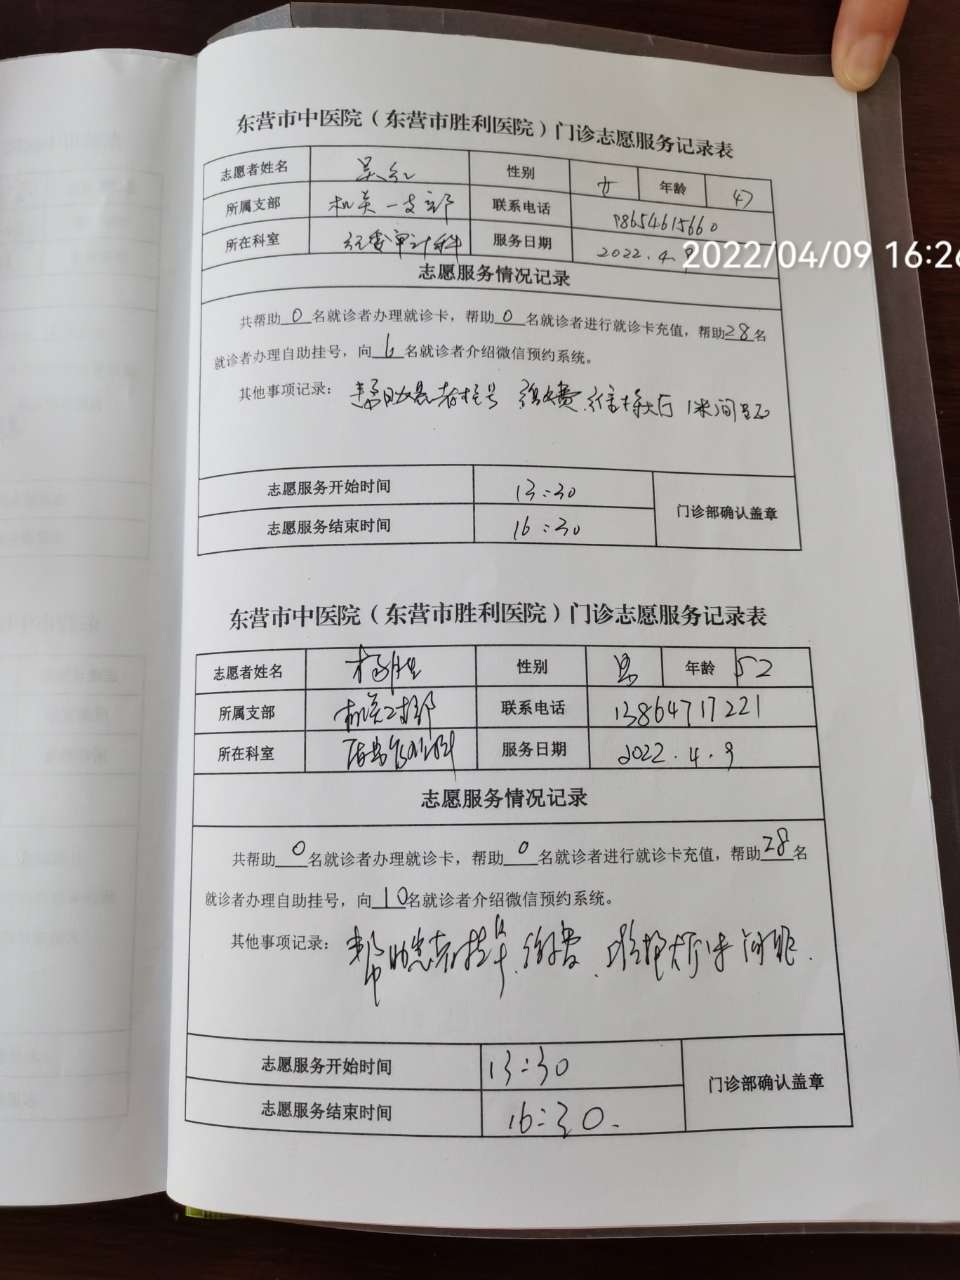 东营市中医院（东营市胜利医院）门诊志愿服务记录表
志愿者姓名 吴红 性别 女 年龄 47
所属支部 机关一支部 联系电话 18654615660
所在科室 纪委审计科 服务日期 2022.4.9
2022/04/09 16:26
志愿服务情况记录
共帮助0名就诊者办理就诊卡，帮助0名就诊者进行就诊卡充值，帮助28名
就诊者办理自助挂号，向6名就诊者介绍微信预约系统。
其他事项记录： 帮助患者挂号 缴费.维持大厅1米间距
志愿服务开始时间 13:30
门诊部确认盖章
志愿服务结束时间 16:30
东营市中医院（东营市胜利医院）门诊志愿服务记录表
志愿者姓名 杨胜 性别 男 年龄 52
所属支部 机关支部 联系电话 13864717221
所在科室 服务日期 2022.4.9
志愿服务情况记录
共帮助0名就诊者办理就诊卡，帮助0名就诊者进行就诊卡充值，帮助28名
就诊者办理自助挂号，向10名就诊者介绍微信预约系统。
其他事项记录： 帮助患者挂号.缴费.维护大厅1米间距.
志愿服务开始时间 13:30
门诊部确认盖章
志愿服务结束时间 16:30.